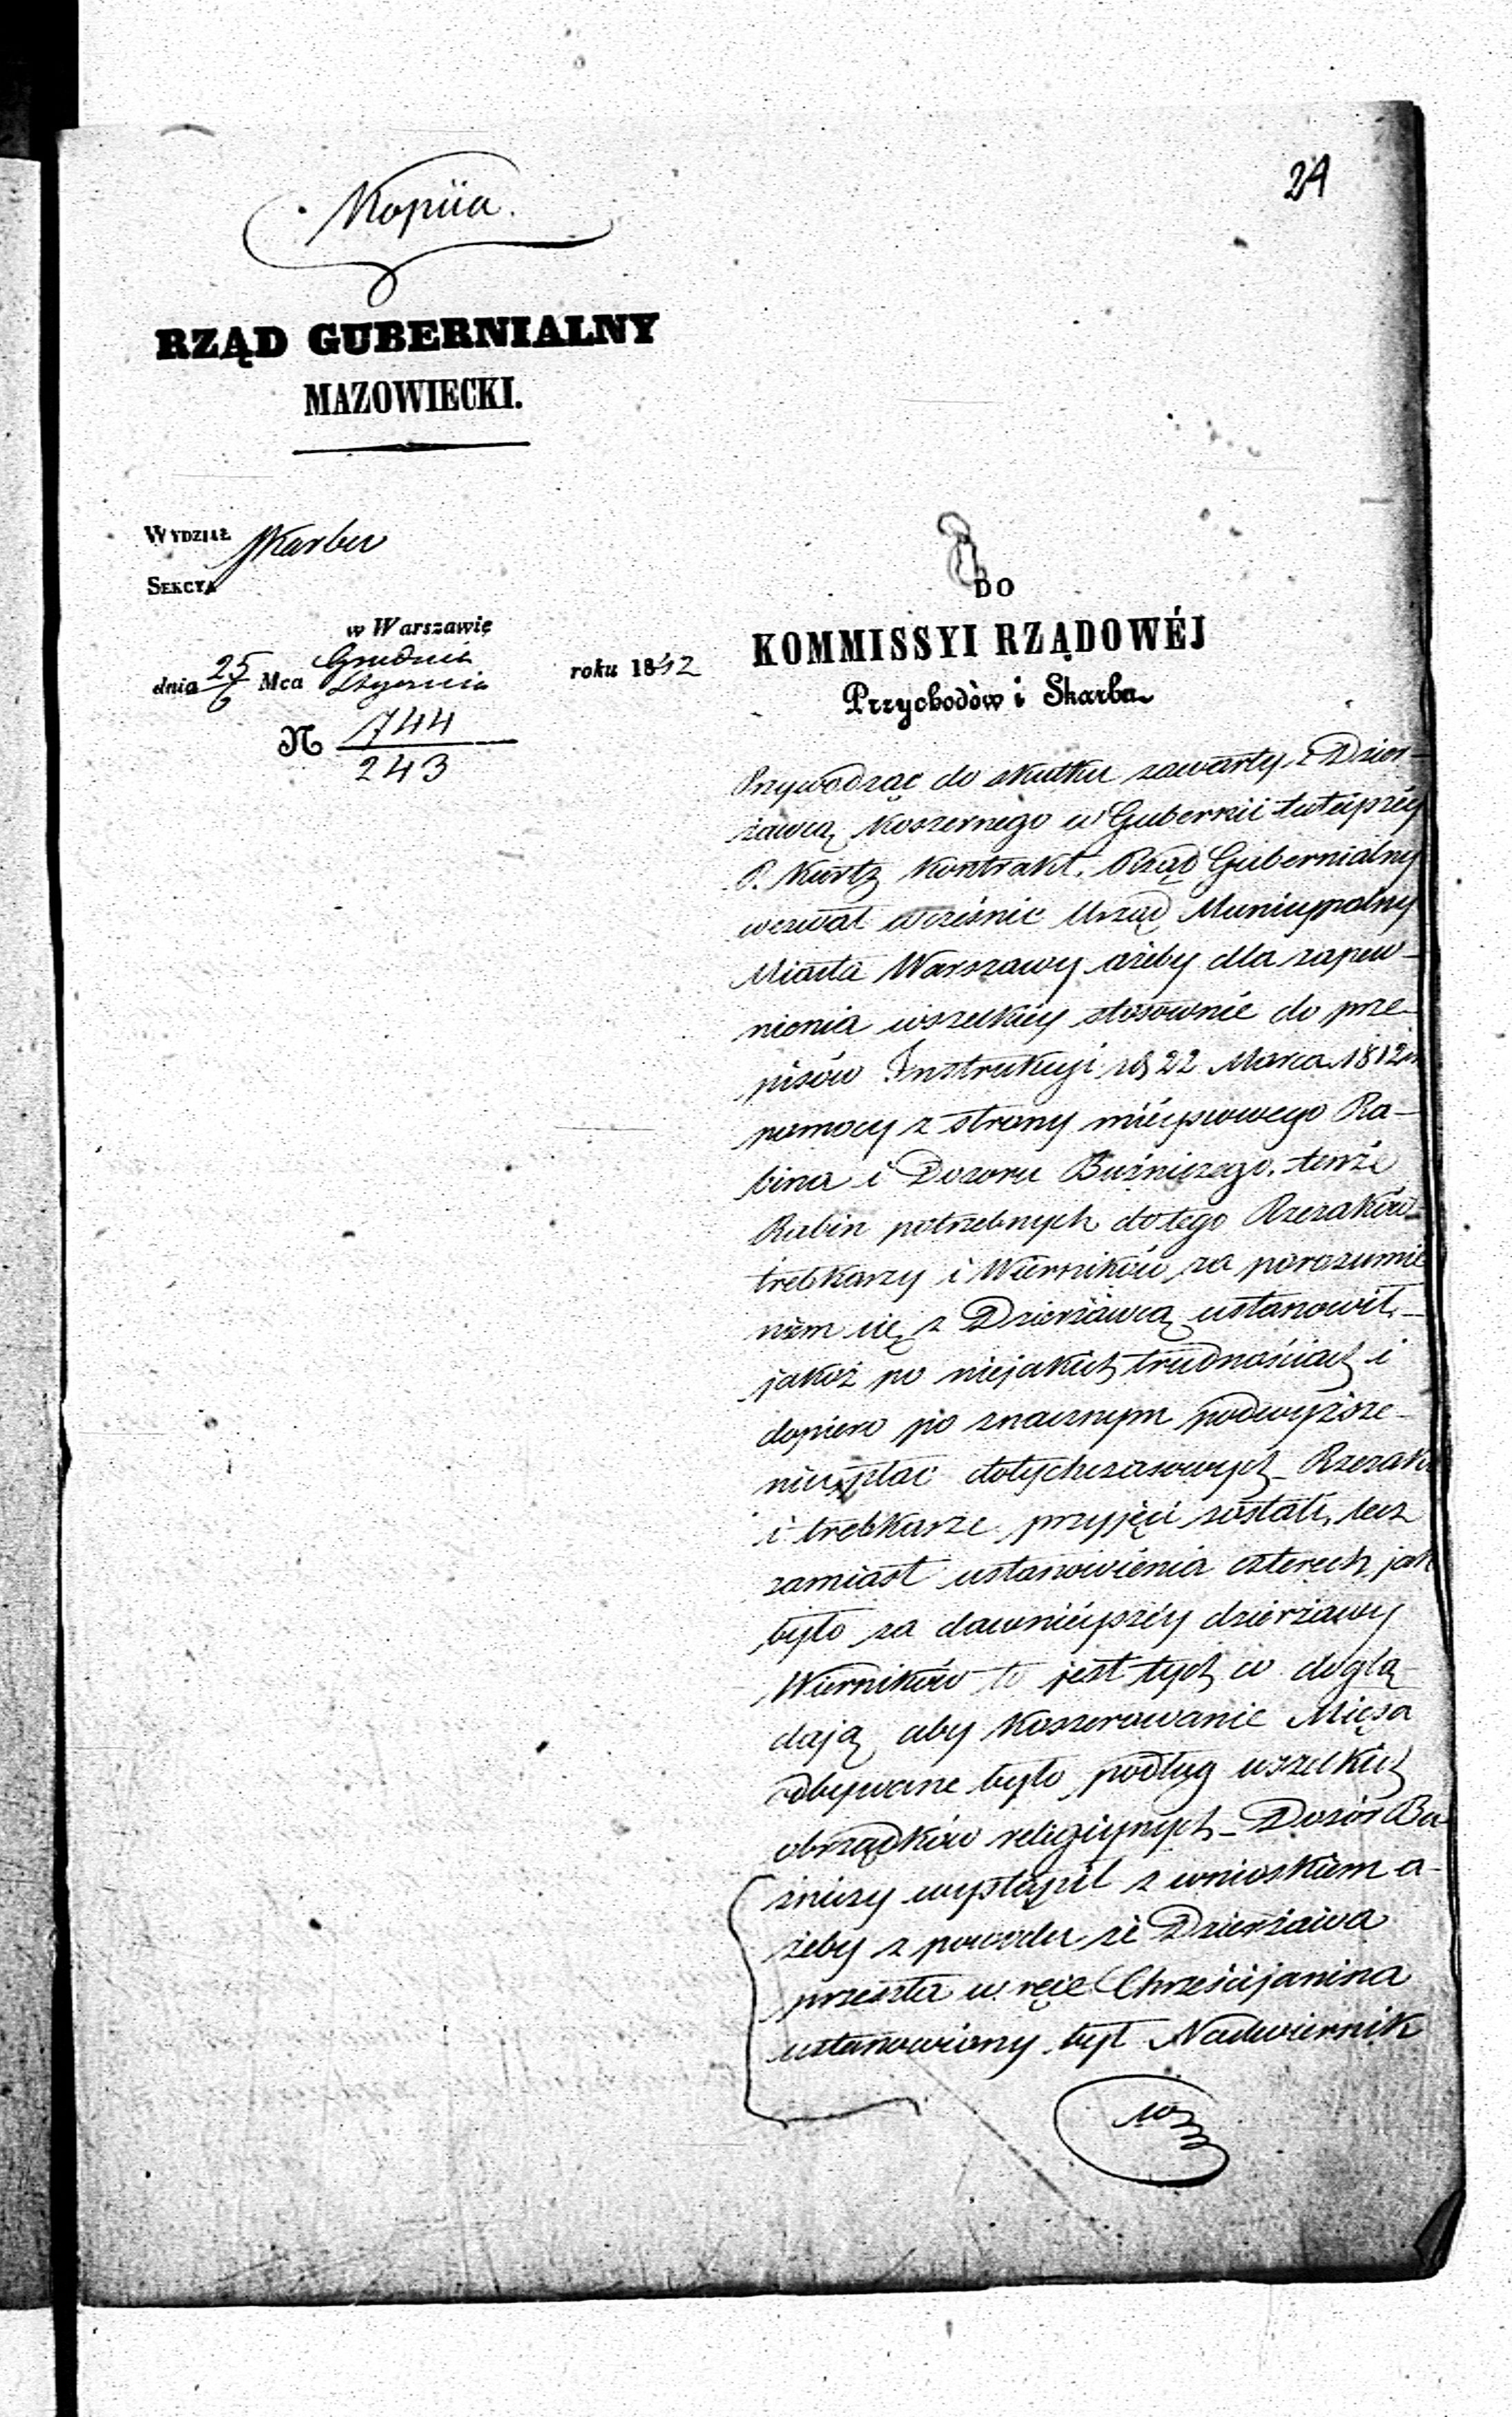 24
Kopiia.
RZĄD GUBERNIALNY
MAZOWIECKI.
WYDZIAŁ Skarbu
SEKCYA
w Warszawie
dnia 25/6 Mca Grudnia/Stycznia roku 1842
N 744/243
DO
KOMMISSYI RZĄDOWÉJ
Przychodów i Skarbu
Przywodząc do skutku zawarty z Dzier-
żawcą koszernego w Gubernii tutéjszéy
P. Kurtz kontrakt, Rząd Gubernialny
wezwał wcześnie Urząd Municypalny
Miasta Warszawy ażeby dla zapew-
nienia wszelkiéy stosownie do prze-
pisów Instrukcyi 22 Marca 1812
pomocy z strony miéyscowego Ra-
bina i Dozoru Bużniczego, tenże
Rabin potrzebnych do tego Rzezaków
trebkarzy i Wierników za porozumie
niem się z Dzierżawcą ustanowił,
jakoż po niejakich trudnościach i
dopiero po znacznym podwyższe-
niu płac dotychczasowych Rzezaki
i trebkarze przyjęci zostali, lecz
zamiast ustanowienia czterech jak
było za dawniéyszéy dzierżawy
Wierników to jest tych co doglą-
dają aby koszerowanie Mięsa
odbywane było podług wszelkich
obrządków religiynych – Dozór Bu
żniczy wystąpił z wnioskiem a-
żeby z powodu że Dzierżawa
przeszła w ręce Chrześcijanina
ustanowiony był Nadwiernik